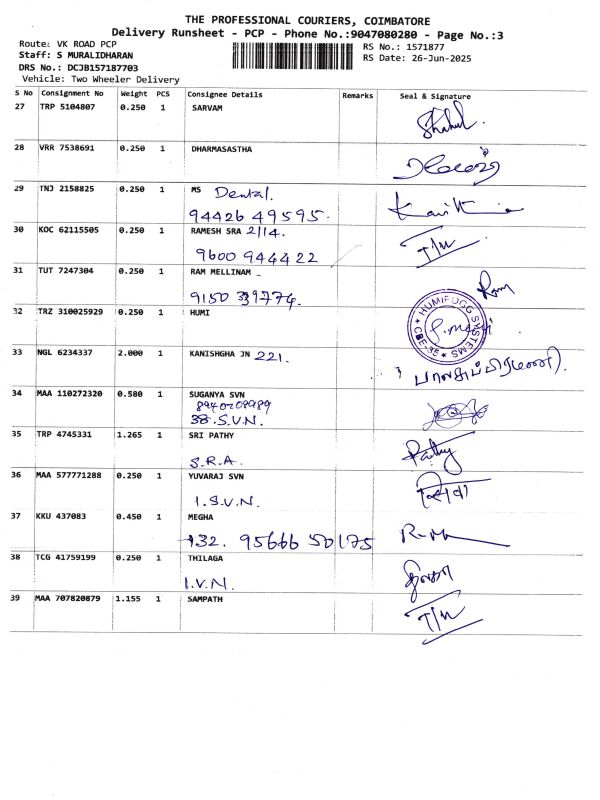 THE PROFESSIONAL COURIERS, COIMBATORE
Delivery Runsheet - PCP - Phone No.:9047080280 - Page No.:3
Route: VK ROAD PCP
RS No.: 1571877
Staff: S MURALIDHARAN
RS Date: 26-Jun-2025
DRS No.: DCJB157187703
Vehicle: Two Wheeler Delivery
S No Consignment No Weight PCS Consignee Details Remarks Seal & Signature
27 TRP 5104807 0.250 1 SARVAM
28 VRR 7538691 0.250 1 DHARMASASTHA
29 TNJ 2158825 0.250 1 MS Dental.
94426 49595.
30 KOC 62115505 0.250 1 RAMESH SRA 2/14. T/W
9600 944422
31 TUT 7247304 0.250 1 RAM MELLINAM Ram
32 TRZ 310025929 0.250 1 HUMI
HUMIFOGG SYSTEMS
CBE-35
33 NGL 6234337 2.000 1 KANISHGHA JN 221.
34 MAA 110272320 0.580 1 SUGANYA SVN
38.S.V.N.
35 TRP 4745331 1.265 1 SRI PATHY Pathy
S.R.A.
36 MAA 577771288 0.250 1 YUVARAJ SVN
1.S.V.N.
37 KKU 437083 0.450 1 MEGHA
132. 95666 50175
38 TCG 41759199 0.250 1 THILAGA
1.V.N.
39 MAA 707820879 1.155 1 SAMPATH T/W